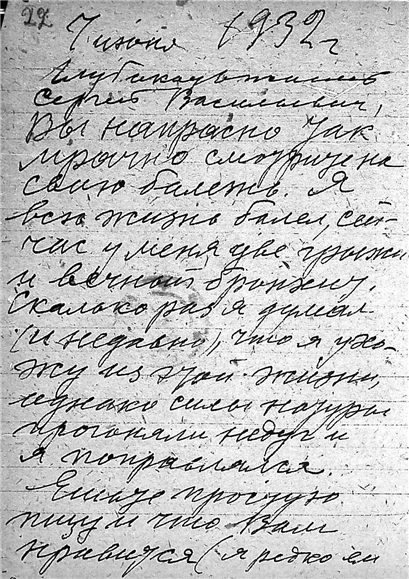 22
7 июня 1932 г
Глубокоуважаемый
Сергей Васильевич,
Вы напрасно так
мрачно смотрите на
свою болезнь. Я
всю жизнь болел, сей-
час у меня две грыжи
и вечный бронхит.
Сколько раз я думал
(и недавно), что я ухо-
жу из этой жизни,
однако силы натуры
прогоняли недуг и
я поправлялся.
Ешьте простую
пищу и что Вам
нравится (я редко ем